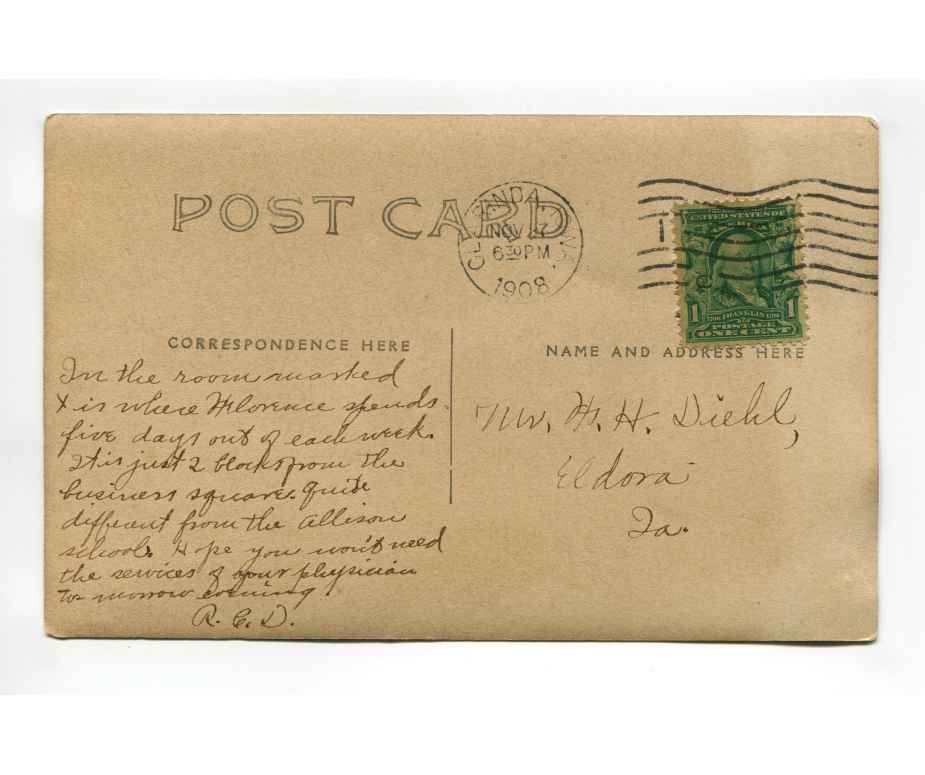 POST CARD
NOV 27
6 30 PM
1908
UNITED STATES OF
AMERICA
1 1
FRANKLIN
POSTAGE
ONE CENT
CORRESPONDENCE HERE
NAME AND ADDRESS HERE
In the room marked
X is where Florence spends
five days out of each week.
It is just 2 blocks from the
business square. Quite
different from the Allison
school. Hope you won't need
the services of your physician
to-morrow evening.
R. E. D.
Mr. H. Diehl,
Eldora
Ia.